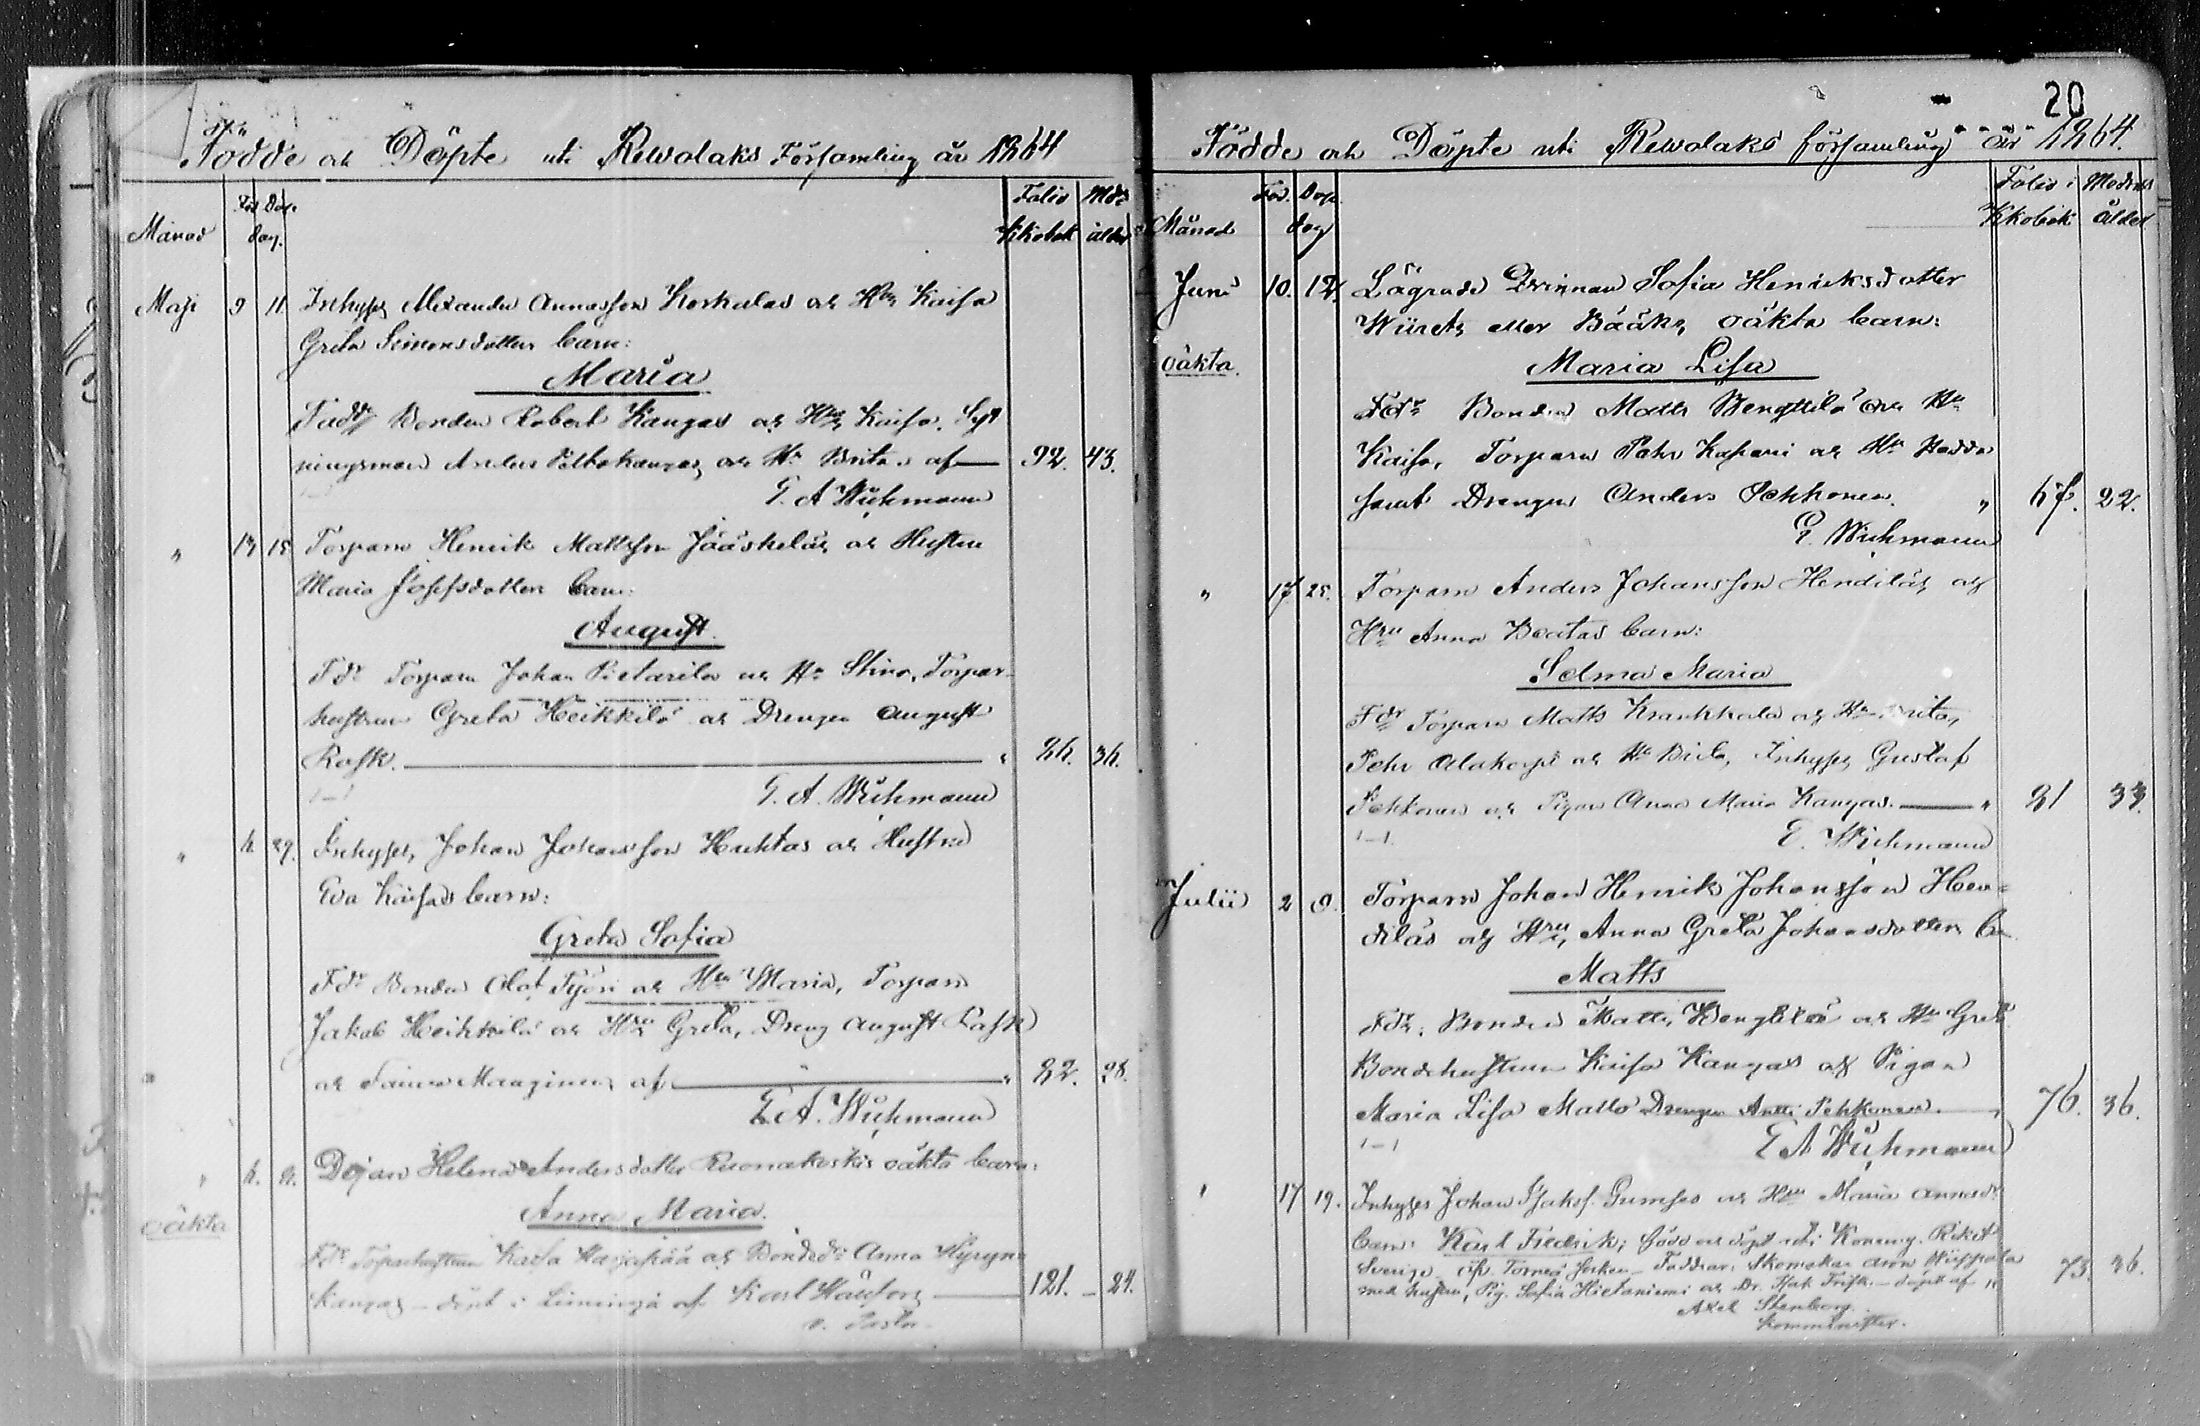 Födde och Döpte uti Rewolaks Församling år 1864
Månad Föd. Döp. dag. Folio Kkobok Mdrs ålder
Maji 9 11 Inhyses Alexander Annasson Koskelas och Hu Kaisa
Greta Simonsdotters barn:
Maria
Fadd Bonden Robert Kangas och Hu Kaisa,
och Hu Brita af 92. 43.
E. A. Wichmann
" 13 15 Torparn Henrik Mattsson Jääskeläs och Hustru
Maria Josefsdotters barn:
August
Fdr Torparn Johan Pietarila och Hu Stina, Torpar-
hustrun Greta Heikkilä och Drengen August
Rask. " 86. 36.
E. A. Wichmann
" 29. Inhyses Johan Johansson Huhtas och Hustru
Eva Kaisas barn:
Greta Sofia
Fdr Bonden Olof Työri och Hru Maria, Torparn
Jakob Heikkilä och Hru Greta, Dreng August Rask
och af " 82. 28.
E. A. Wichmann
" Dejan Helena Andersdotter Ruonakoskis oäkta barn:
oäkta
Anna Maria.
Fdr Torparhustrun Kaisa Harjapää och Bondedr Anna
Kangas – döpt i Limingo af Karl 121. – 24.
v. Pastor.
20
Födde och Döpte uti Rewolaks församling år 1864.
Månad Föd. Döp. dag Folio i Kkobok Modrens ålder
Juni 10. 12. Lägrade Qvinnan Sofia Henriksdotter
Wiirets eller Bääks, oäkta barn:
oäkta.
Maria Lisa
Fdr Bonden Matts Wengttilä och Hu
Kaisa, Torparn Pehr och Hu Hedda
samt Drengen Anders Pehkonen. " 67. 22.
E. Wichmann
" 17. 25. Torparn Anders Johansson Hendiläs och
Hru Anna Beatas barn:
Selma Maria
Fdr Torparn Matts Krankkala och Hu Brita,
Pehr Alakorpi och Hu Brita, Inhyses Gustaf
Pehkonen och Pigan Anna Maria Kangas. " 81 33.
E. Wichmann
Julii 2 Torparn Johan Henrik Johansson Hen=
diläs och Hru, Anna Greta Johansdotters b
Matts
Fdr. Bonden Matts Wengtilä och Hu Greta
Bondehustrun Kaisa Kangas och Pigan
Maria Lisa Matts Drengen Antti Pehkonen. 76. 36.
E A Wichmann
" 17 19. Inhyses Johan Isaks. Gumsas och Hru Maria Annasdr
barn: Karl Fredrik; född och döpt uti Konung. Riket
Sverige, Torneå Socken – Faddrar: Skomakar
med hustru, Pig. Sofia Hietaniemi och Dr. Isak – döpt af 73. 36.
Axel Stenborg.
Komminister.